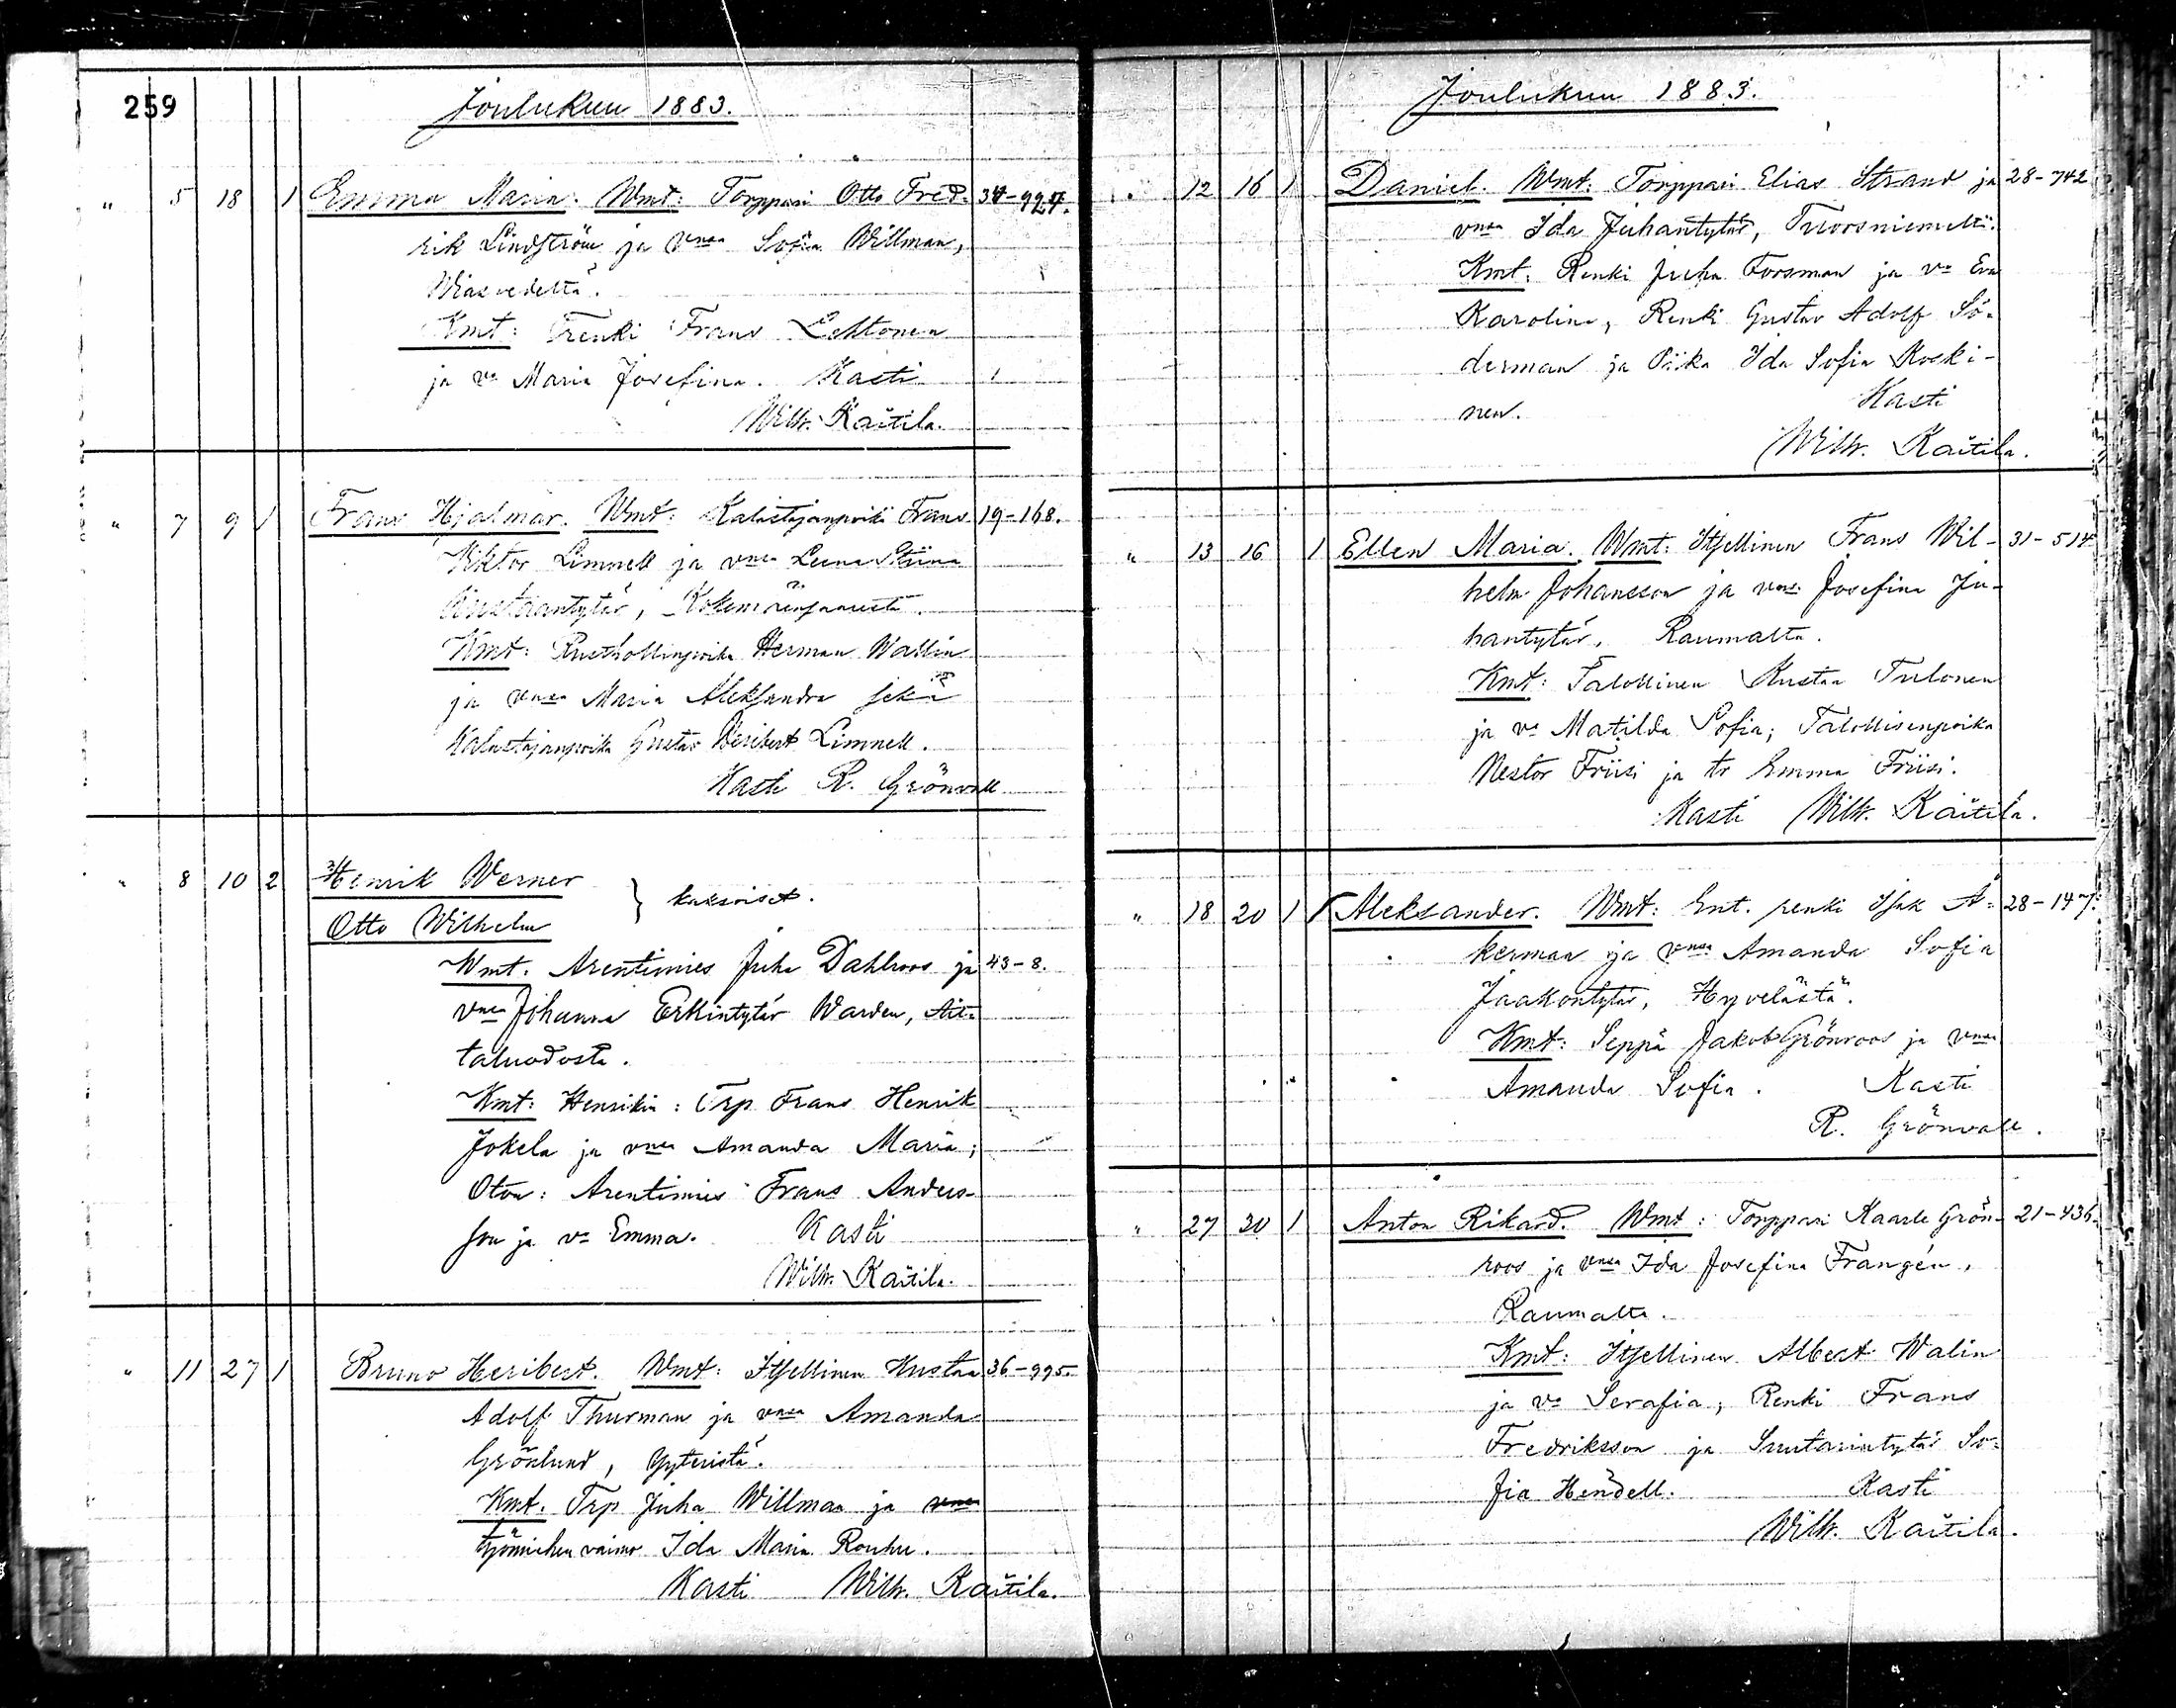 259
Joulukuu 1883.
" 5 18 1 Emma Maria. Wmt: Torppari Otto Fred- 34-927.
rik Lindström ja vmsa Sofia Willman,
Wiasvedeltä.
Kmt: Trenki Frans Lehtonen
ja va Maria Josefina. Kasti
Wilh. Kaitila.
" 7 9 1 Frans Hjalmar. Wmt: Kalastajanpoika Frans 19-168.
Viktor Limnell ja vmsa Leena Stiina
Kustaantytär, Kokemäensaaresta.
Kmt: Rusthollinpoika Herman Wallin
ja vmsa Maria Aleksandra sekä
Kalastajanpoika Gustav Heribert Limnell.
Kasti R. Grönvall
" 8 10 2 Henrik Werner
Otto Wilhelm } kaksoiset.
Wmt. Arentimies Juha Dahlroos ja 43-8.
vmsa Johanna Erkintytär Warden, Ait-
taluodosta.
Kmt: Henrikin: Trp Frans Henrik
Jokela ja vmsa Amanda Maria;
Oton: Arentimies Frans Anders-
son ja va Emma. Kasti
Wilh. Kaitila.
" 11 27 1 Bruno Heribert. Wmt: Itsellinen Kustaa 36-995.
Adolf Thurman ja vmsa Amanda
Grönlund, Yyteristä.
Kmt. Trp Juha Willman ja
työmiehen vaimo Ida Maria Rouhu.
Kasti Wilh. Kaitila.
Joulukuu 1883.
" 12 16 1 Daniel. Wmt: Torppari Elias Strand ja 28-742
vmsa Ida Juhantytär, Tuorsniemeltä.
Kmt: Renki Juha Forsman ja va Eva
Karolina, Renki Gustav Adolf Sö-
derman ja Piika Ida Sofia Koski-
nen. Kasti
Wilh. Kaitila.
" 13 16 1 Ellen Maria. Wmt: Itsellinen Frans Wil- 31-514
helm Johansson ja vmsa Josefina Ju-
hantytär, Raumalta.
Kmt: Talollinen Kustaa Tulonen
ja va Matilda Sofia; Talollisenpoika
Nestor Friisi ja tr Emma Friisi.
Kasti Wilh. Kaitila.
" 18 20 1 Aleksander. Wmt: Ent. renki Isak Å- 28-147.
kerman ja vmsa Amanda Sofia
Jaakontytär, Hyvelästä.
Kmt: Seppä Jakob Grönroos ja vmsa
Amanda Sofia. Kasti
R. Grönvall.
" 27 30 1 Anton Rikard. Wmt: Torppari Kaarle Grön- 21-436.
roos ja vmsa Ida Josefina Frangén,
Raumalta.
Kmt: Itsellinen Albert Walin
ja va Serafia; Renki Frans
Fredriksson ja Suutarintytär So-
fia Hendell. Kasti
Wilh. Kaitila.